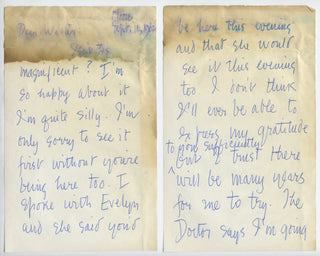 Dear Walter,
Sept. 14, 1962
Isn't the
magnificent? I'm
so happy about it
I'm quite silly. I'm
only sorry to see it
first without you're
being here too. I
spoke with Evelyn
and she said you'd
be here this evening
and that she would
see it this evening
too. I don't think
I'll ever be able to
express my gratitude
to you sufficiently
but I trust there
will be many years
for me to try. The
Doctor says I'm going